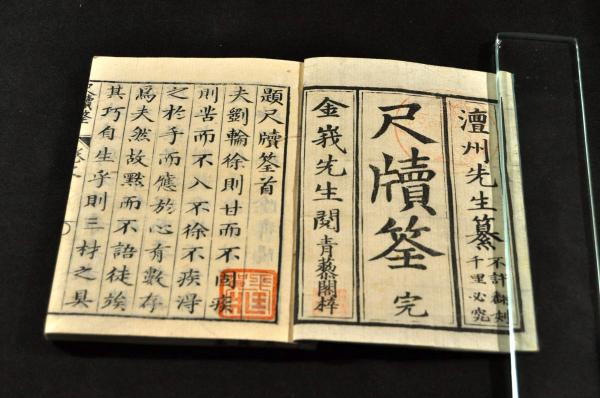 澶州先生纂
不許翻刻
千里必究
尺牘筌 完
金峩先生閲 青藜閣梓
題尺牘筌首
夫斵輪徐則甘而不固疾
則苦而不入不徐不疾得
之於手而應於心有數存
焉夫然故默而不語徒竢
其巧自生乎則三材之具
尺牘筌